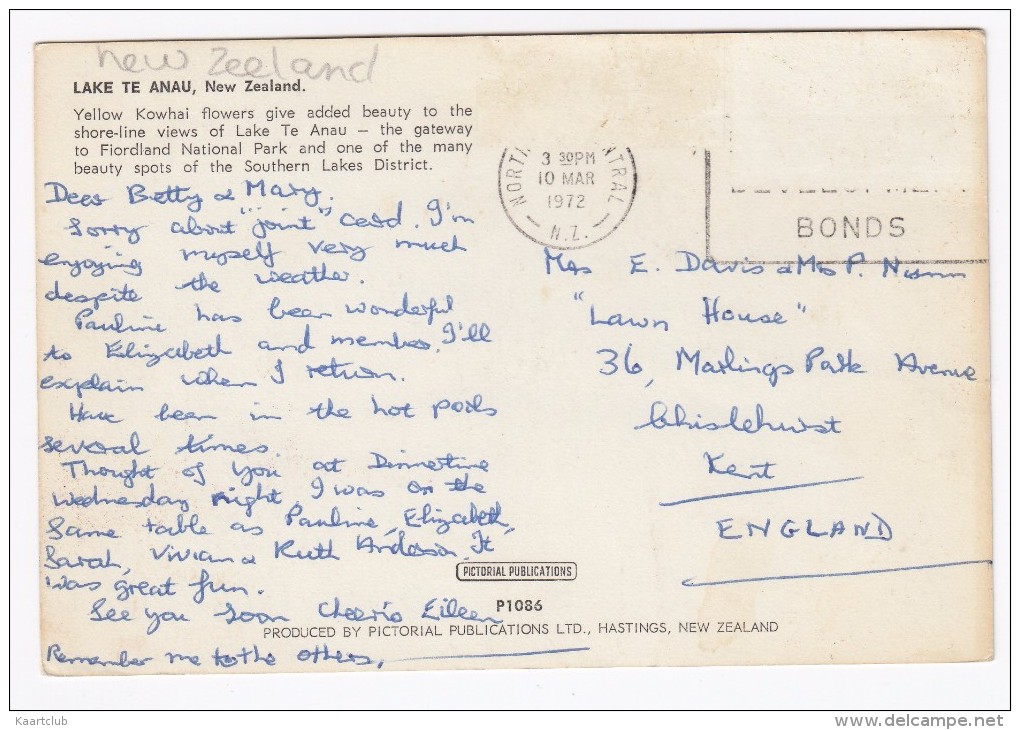 new Zeeland
LAKE TE ANAU, New Zealand.
Yellow Kowhai flowers give added beauty to the
shore-line views of Lake Te Anau — the gateway
to Fiordland National Park and one of the many
beauty spots of the Southern Lakes District.
3 30PM
10 MAR
1972
N.Z.
BONDS
Dear Betty & Mary.
Sorry about "joint" card. I'm
enjoying myself very much
despite the weather.
Pauline has been wonderful
to Elizabeth and members. I'll
explain when I return.
Have been in the hot pools
several times.
Thought of you at Dinnertime
Wednesday night. I was on the
same table as Pauline, Elizabeth,
Sarah, Vivian & Ruth Anderson. It
was great fun.
See you soon Cheerio Eileen
Remember me to the others.
Mrs E. Davis & Mrs P.
"Lawn House"
36, Marlings Park Avenue
Chislehurst
Kent
ENGLAND
PICTORIAL PUBLICATIONS
P1086
PRODUCED BY PICTORIAL PUBLICATIONS LTD., HASTINGS, NEW ZEALAND
Kaartclub
http://www.delcampe.net